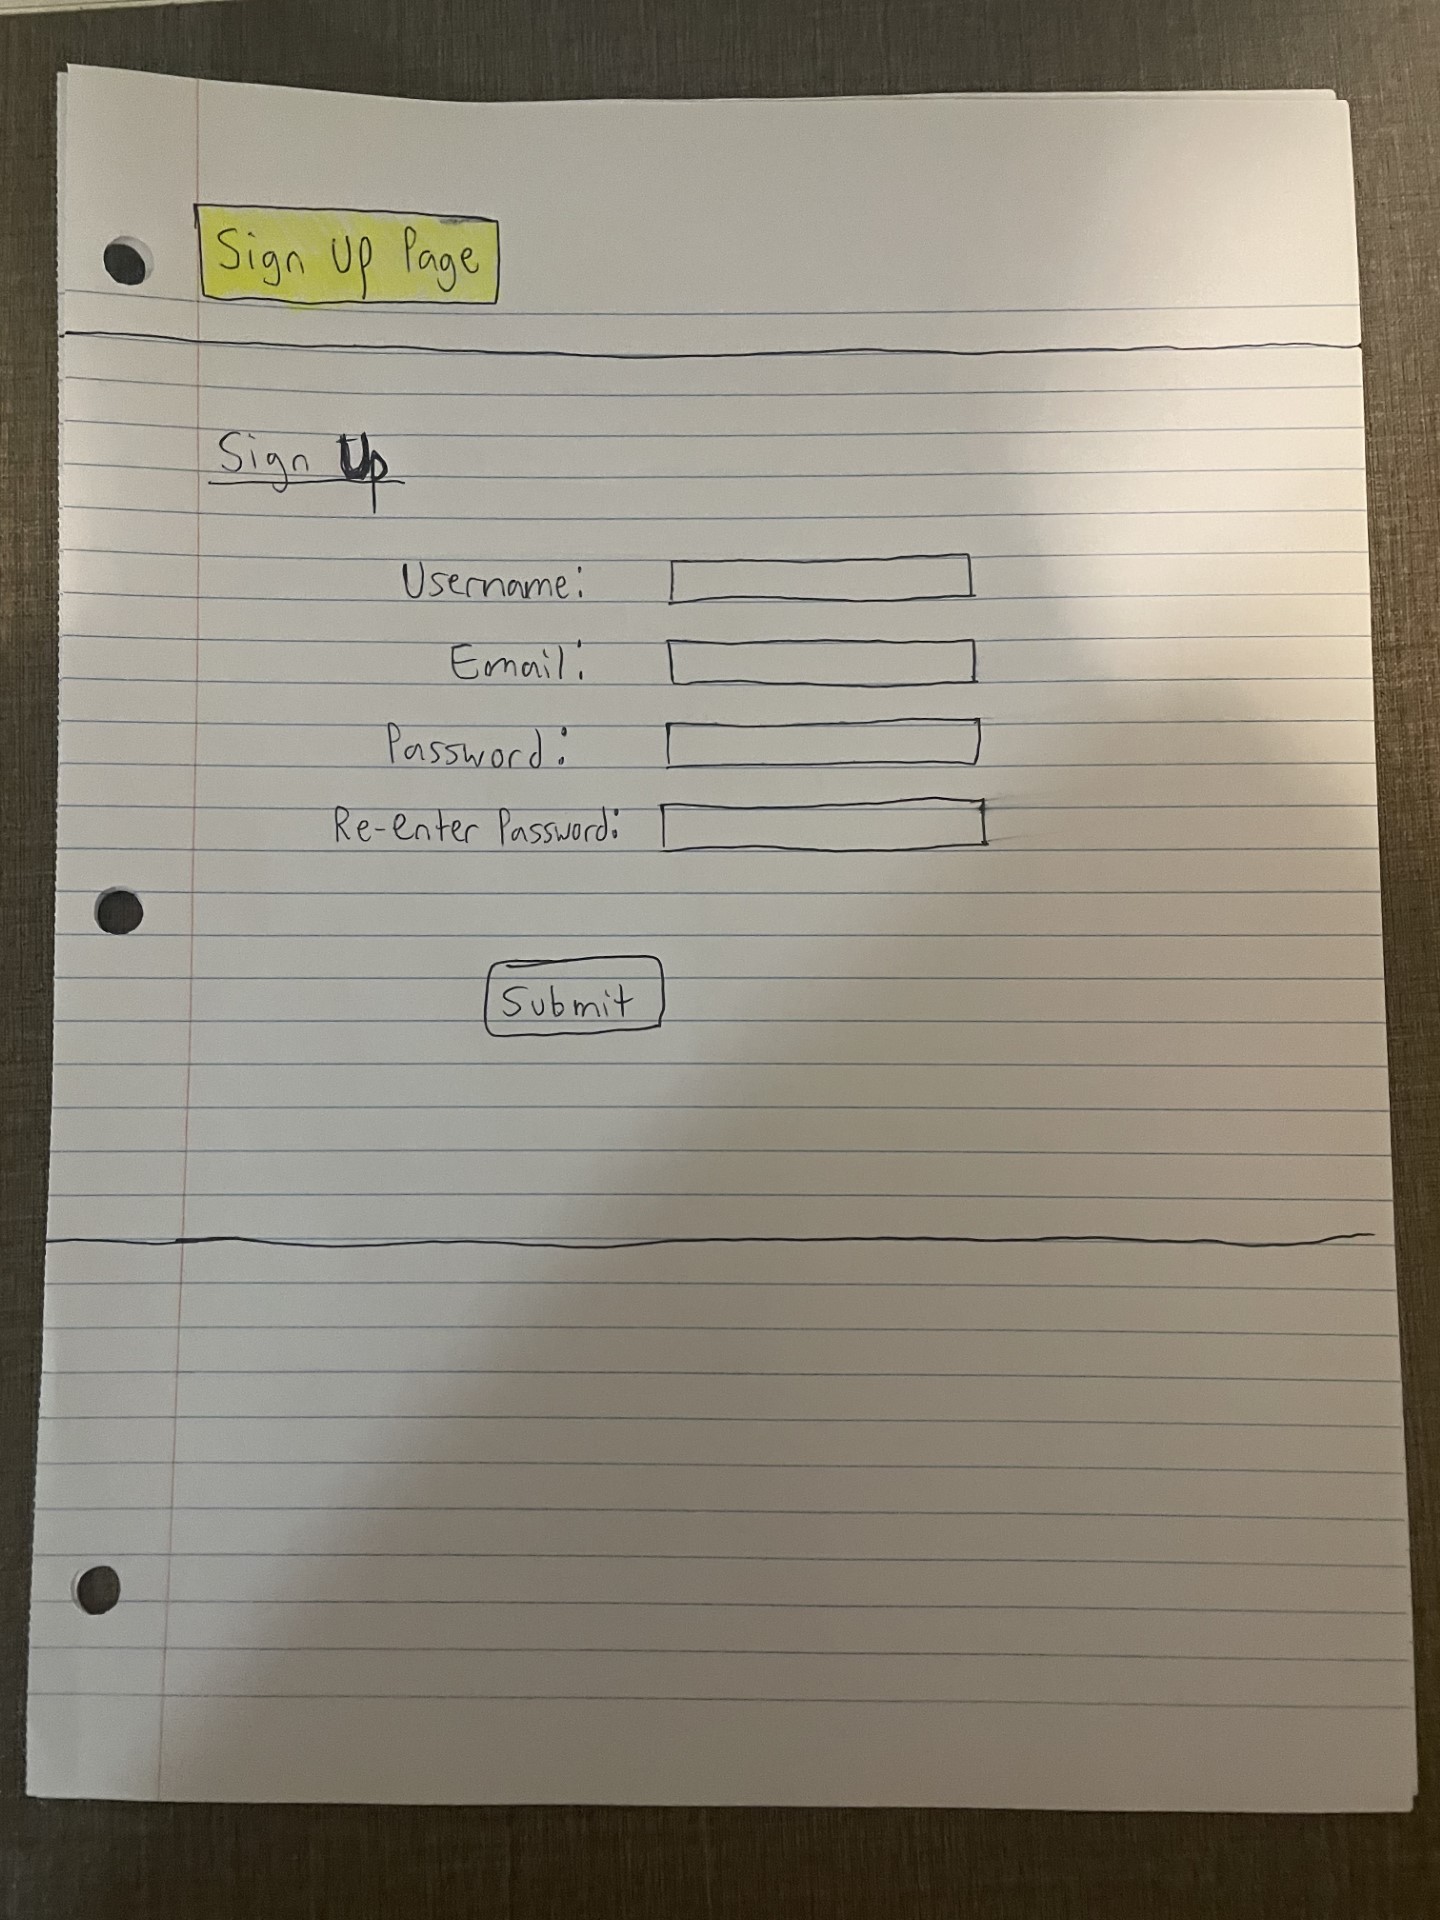 Sign Up Page
Sign Up
Username:
Email:
Password:
Re-enter Password:
Submit